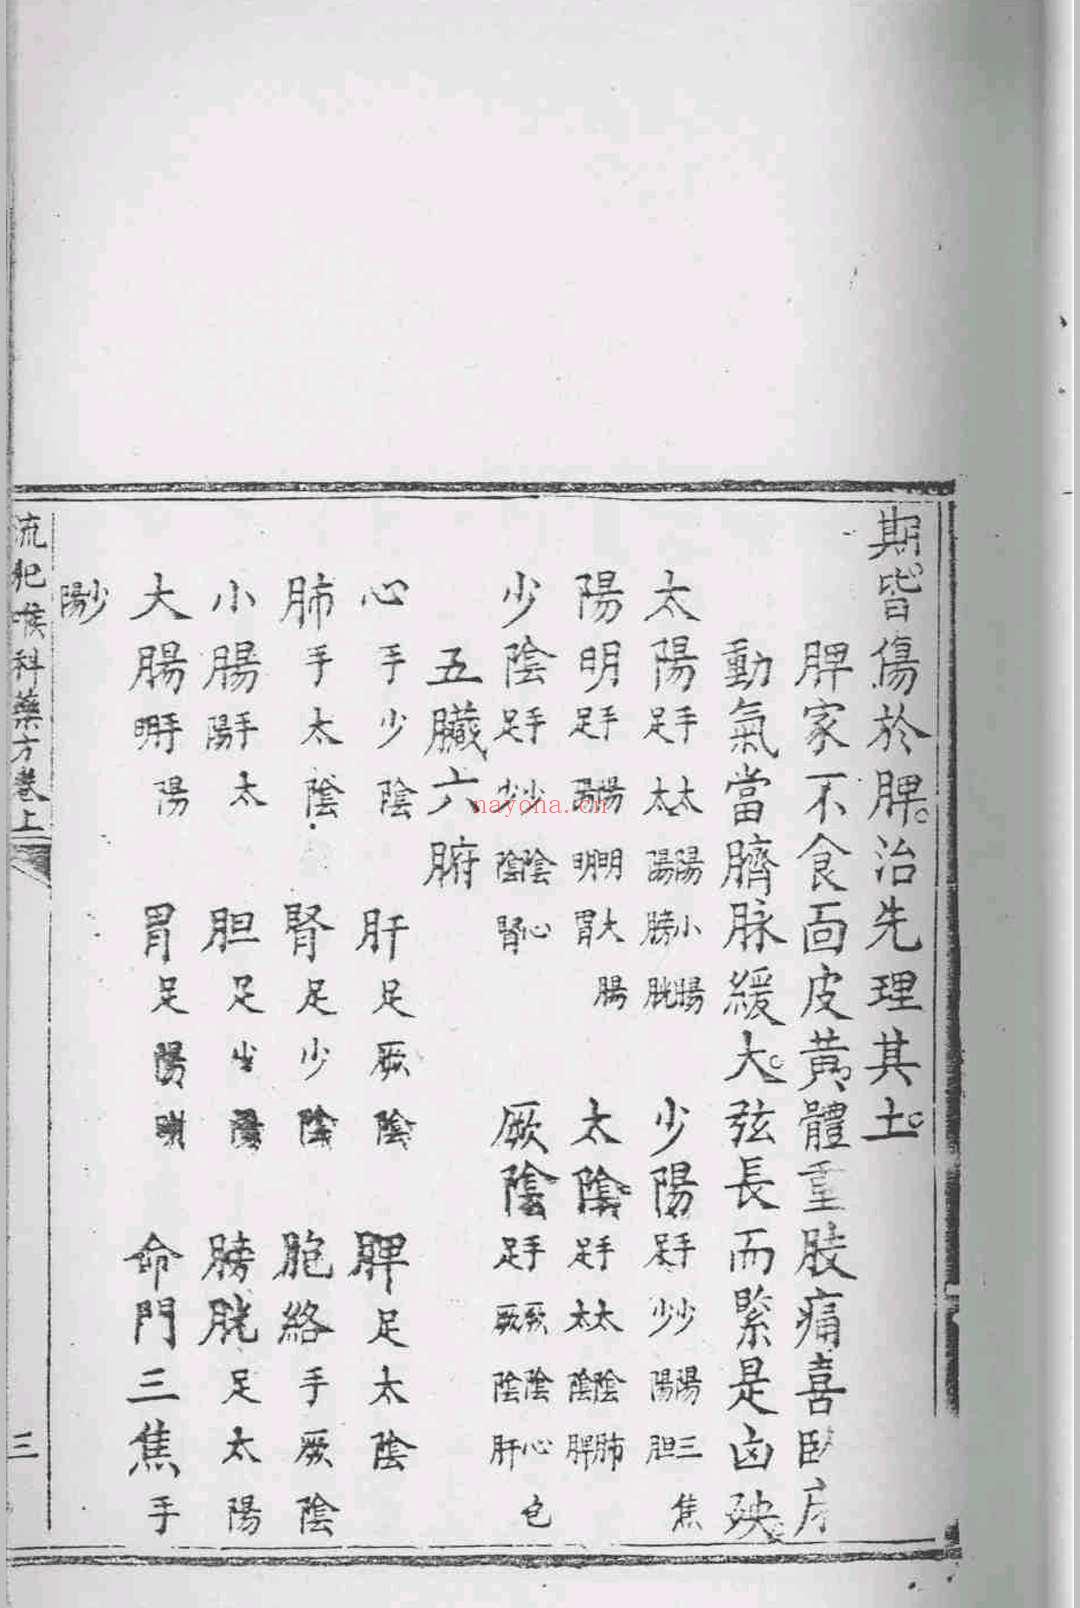 期皆傷於脾。治先理其土。
脾家不食面皮黃體重肢痛喜臥床
動氣當臍脉緩大。弦長而緊是凶殃。
太陽手太陽小腸足太陽膀胱 少陽手少陽三焦足少陽胆
陽明手陽明大腸足陽明胃 太陰手太陰肺足太陰脾
少陰手少陰心足少陰腎 厥陰手厥陰心包足厥陰肝
五臟六腑
心手少陰 肝足厥陰 脾足太陰
肺手太陰 腎足少陰 胞絡手厥陰
小腸手太陽 胆足少陽 膀胱足太陽
大腸手陽明 胃足陽明 命門三焦手
少陽
喉科藥方卷上
三
nayona.cn